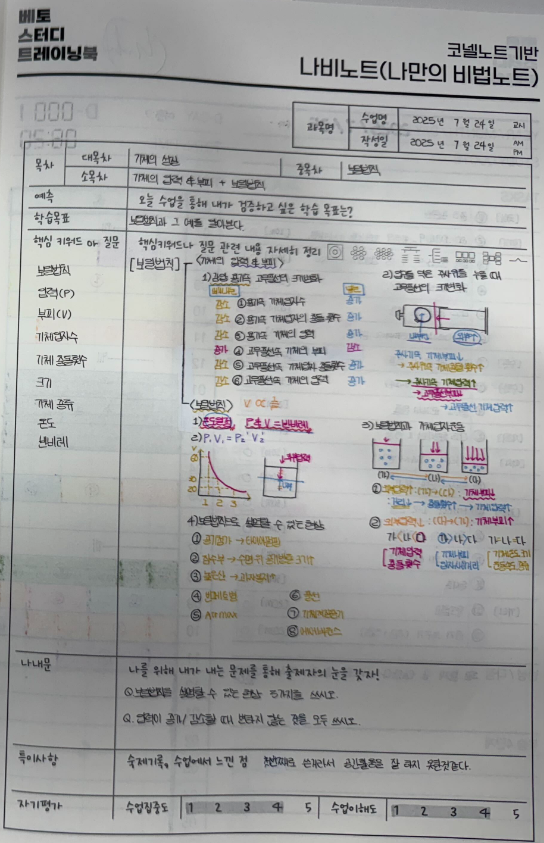 베토
스터디
트레이닝북
코넬노트기반
나비노트(나만의 비법노트)
과목명
수업명
2025년 7월 24일 교시
작성일
2025년 7월 24일 AM PM
목차
대목차
기체의 성질
중목차
보일법칙
소목차
기체의 압력 & 부피 + 보일법칙
예측
오늘 수업을 통해 내가 검증하고 싶은 학습 목표는?
학습목표
보일법칙과 그 예를 알아본다.
핵심 키워드 or 질문
핵심키워드나 질문 관련 내용 자세히 정리
보일법칙
압력(P)
부피(V)
기체입자수
기체 충돌횟수
크기
기체 종류
온도
반비례
[보일법칙]
<기체의 압력 & 부피>
고무풍선의 크기변화
감소 ① 용기속 기체입자수 증가
감소 ② 용기속 기체입자의 충돌횟수 증가
감소 ③ 용기속 기체의 압력 증가
증가 ④ 고무풍선속 기체의 부피 감소
감소 ⑤ 고무풍선속 기체입자 충돌횟수 증가
감소 ⑥ 고무풍선속 기체의 압력 증가
고무풍선의 크기변화
주사기속 기체부피↓
→ 주사기속 기체충돌횟수↑
→ 주사기속 기체압력↑
→ 고무풍선부피↓
→ 고무풍선 기체압력↑
<보일법칙>
1) 온도일정, P & V = 반비례
2) P₁V₁ = P₂V₂
1 2 3
3) 보일법칙과 기체입자운동
(가) (나) (다)
① 외부압력↑ : (가)→(다) : 기체부피↓
→ 충돌횟수↑ → 기체압력↑
② 외부압력↓ : (다)→(가) : 기체부피↑
가<나<다
가>나>다
가=나=다
기체압력
충돌횟수
기체부피
입자사이거리
4) 보일법칙으로 설명할 수 있는 현상
② 잠수부 → 수면위 공기방울 크기↑
③ 높은산 → 과자봉지↑
⑦ 기체
나내문
나를 위해 내가 내는 문제를 통해 출제자의 눈을 갖자!
Q. 보일법칙을 설명할 수 있는 현상 3가지를 쓰시오.
Q. 압력이 증가/감소할 때 변하지 않는 것을 모두 쓰시오.
특이사항
숙제기록, 수업에서 느낀 점
자기평가
수업집중도
1 2 3 4 5
수업이해도
1 2 3 4 5